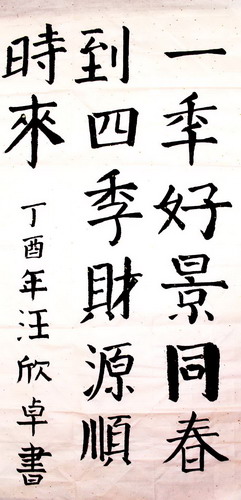 一年好景同春
到四季財源順
時來
丁酉年汪欣卓書